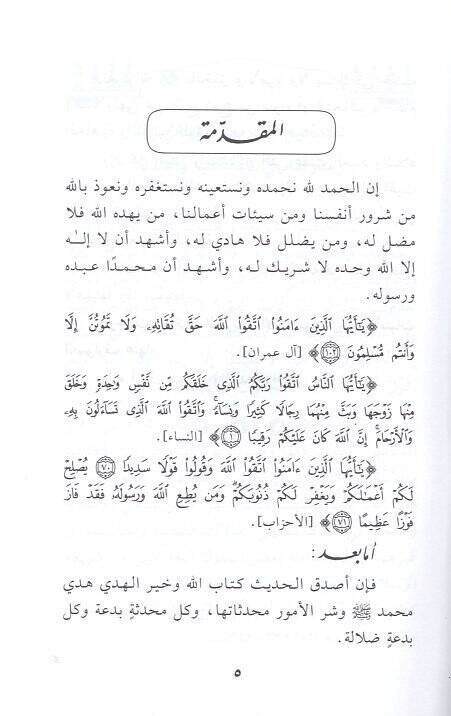 المقدّمة
إن الحمد لله نحمده ونستعينه ونستغفره ونعوذ بالله
من شرور أنفسنا ومن سيئات أعمالنا، من يهده الله فلا
مضل له، ومن يضلل فلا هادي له، وأشهد أن لا إلٰه
إلا الله وحده لا شريك لـه، وأشهد أن محمدًا عبده
ورسوله.
﴿يَٰٓأَيُّهَا ٱلَّذِينَ ءَامَنُوا۟ ٱتَّقُوا۟ ٱللَّهَ حَقَّ تُقَاتِهِۦ وَلَا تَمُوتُنَّ إِلَّا
وَأَنتُم مُّسْلِمُونَ ١٠٢﴾ [آل عمران].
﴿يَٰٓأَيُّهَا ٱلنَّاسُ ٱتَّقُوا۟ رَبَّكُمُ ٱلَّذِى خَلَقَكُم مِّن نَّفْسٍ وَٰحِدَةٍ وَخَلَقَ
مِنْهَا زَوْجَهَا وَبَثَّ مِنْهُمَا رِجَالًا كَثِيرًا وَنِسَآءً ۚ وَٱتَّقُوا۟ ٱللَّهَ ٱلَّذِى تَسَآءَلُونَ بِهِۦ
وَٱلْأَرْحَامَ ۚ إِنَّ ٱللَّهَ كَانَ عَلَيْكُمْ رَقِيبًا ١﴾ [النساء].
﴿يَٰٓأَيُّهَا ٱلَّذِينَ ءَامَنُوا۟ ٱتَّقُوا۟ ٱللَّهَ وَقُولُوا۟ قَوْلًا سَدِيدًا ٧٠ يُصْلِحْ
لَكُمْ أَعْمَٰلَكُمْ وَيَغْفِرْ لَكُمْ ذُنُوبَكُمْ ۗ وَمَن يُطِعِ ٱللَّهَ وَرَسُولَهُۥ فَقَدْ فَازَ
فَوْزًا عَظِيمًا ٧١﴾ [الأحزاب].
أما بعد:
فإن أصدق الحديث كتاب الله وخير الهدي هدي
محمد ﷺ وشر الأمور محدثاتها، وكل محدثةٍ بدعة وكل
بدعةٍ ضلالة.
٥